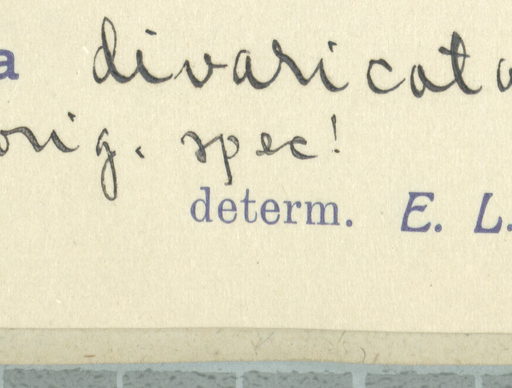 a divaricata
orig. spec!
determ. E. L.